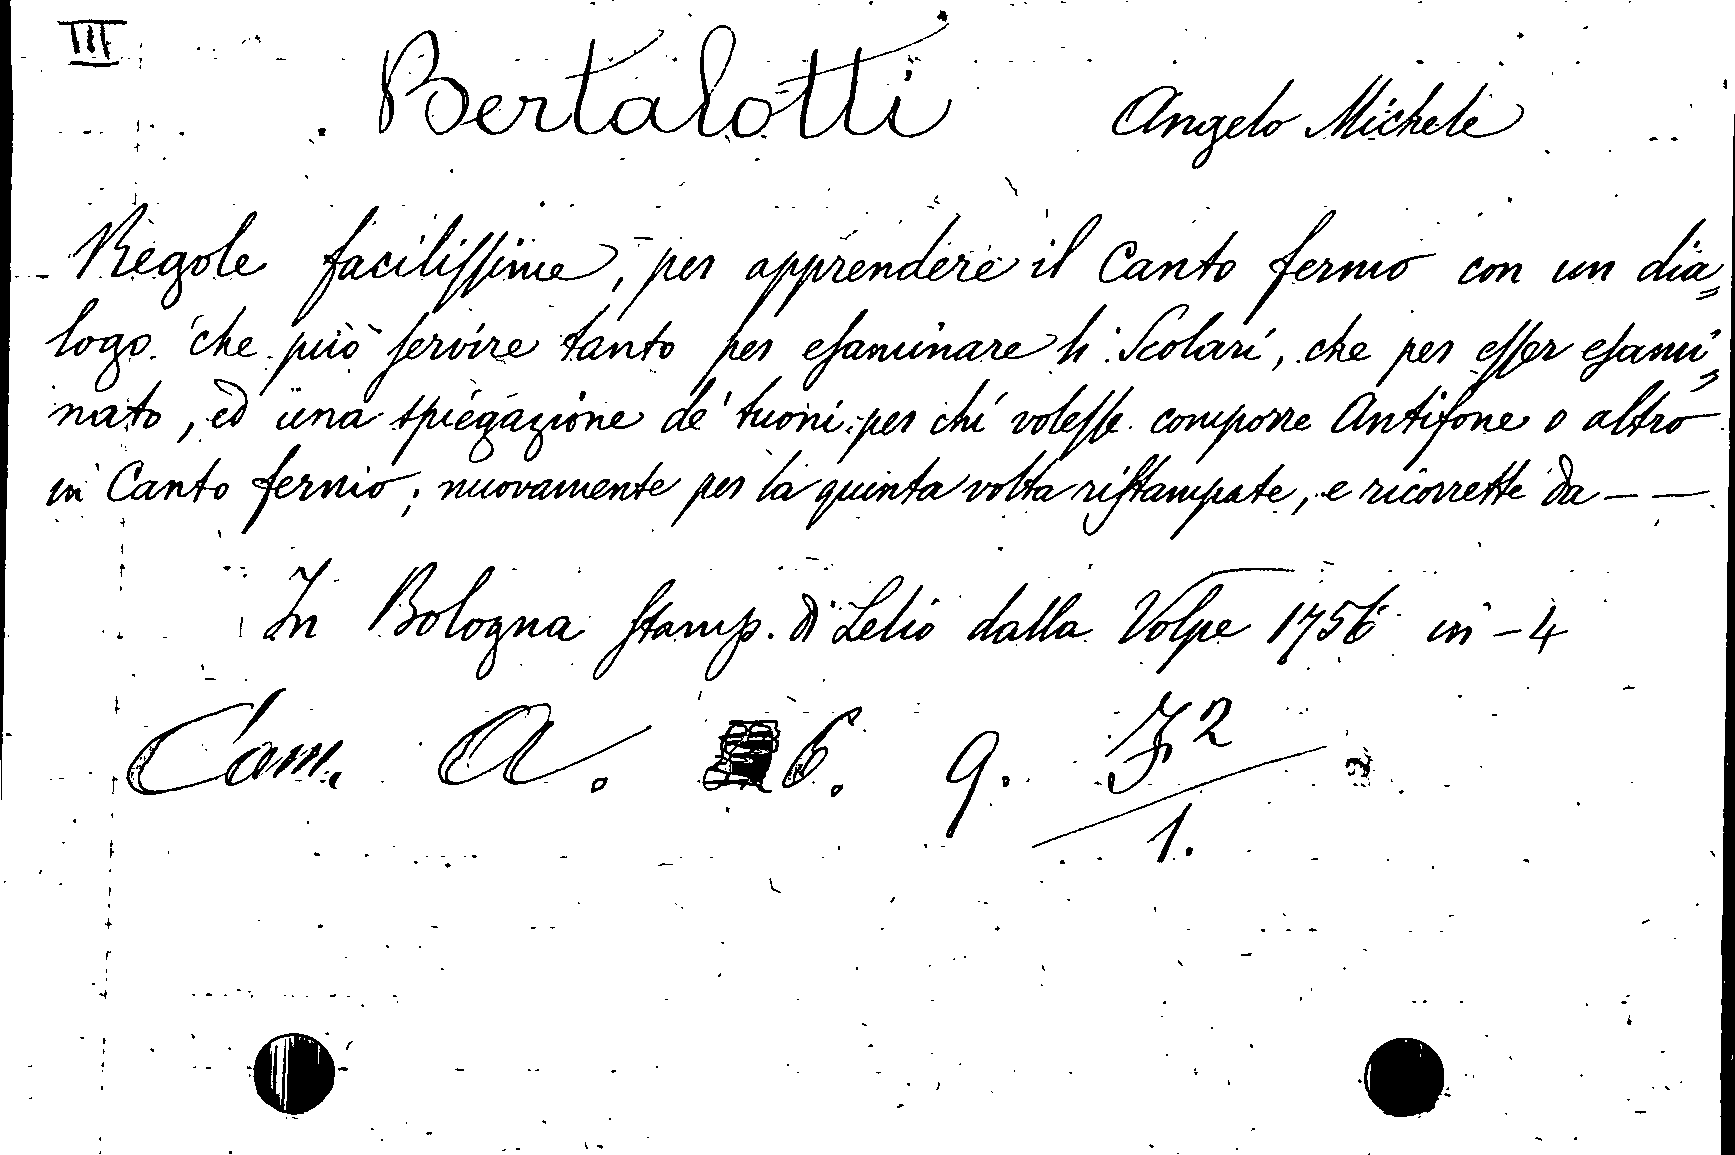 III
Bertalotti Angelo Michele
Regole facilissime, per apprendere il Canto fermo con un dia=
logo che può servire tanto per esaminare li Scolari, che per esser esami=
nato, ed una spiegazione de' tuoni per chi volesse comporre Antifone o altro
in Canto fermo; nuovamente per la quinta volta ristampate, e ricorrette da — —
In Bologna stamp. di Lelio dalla Volpe 1756 in-4
Cam. A. 6. 9. 2
1.